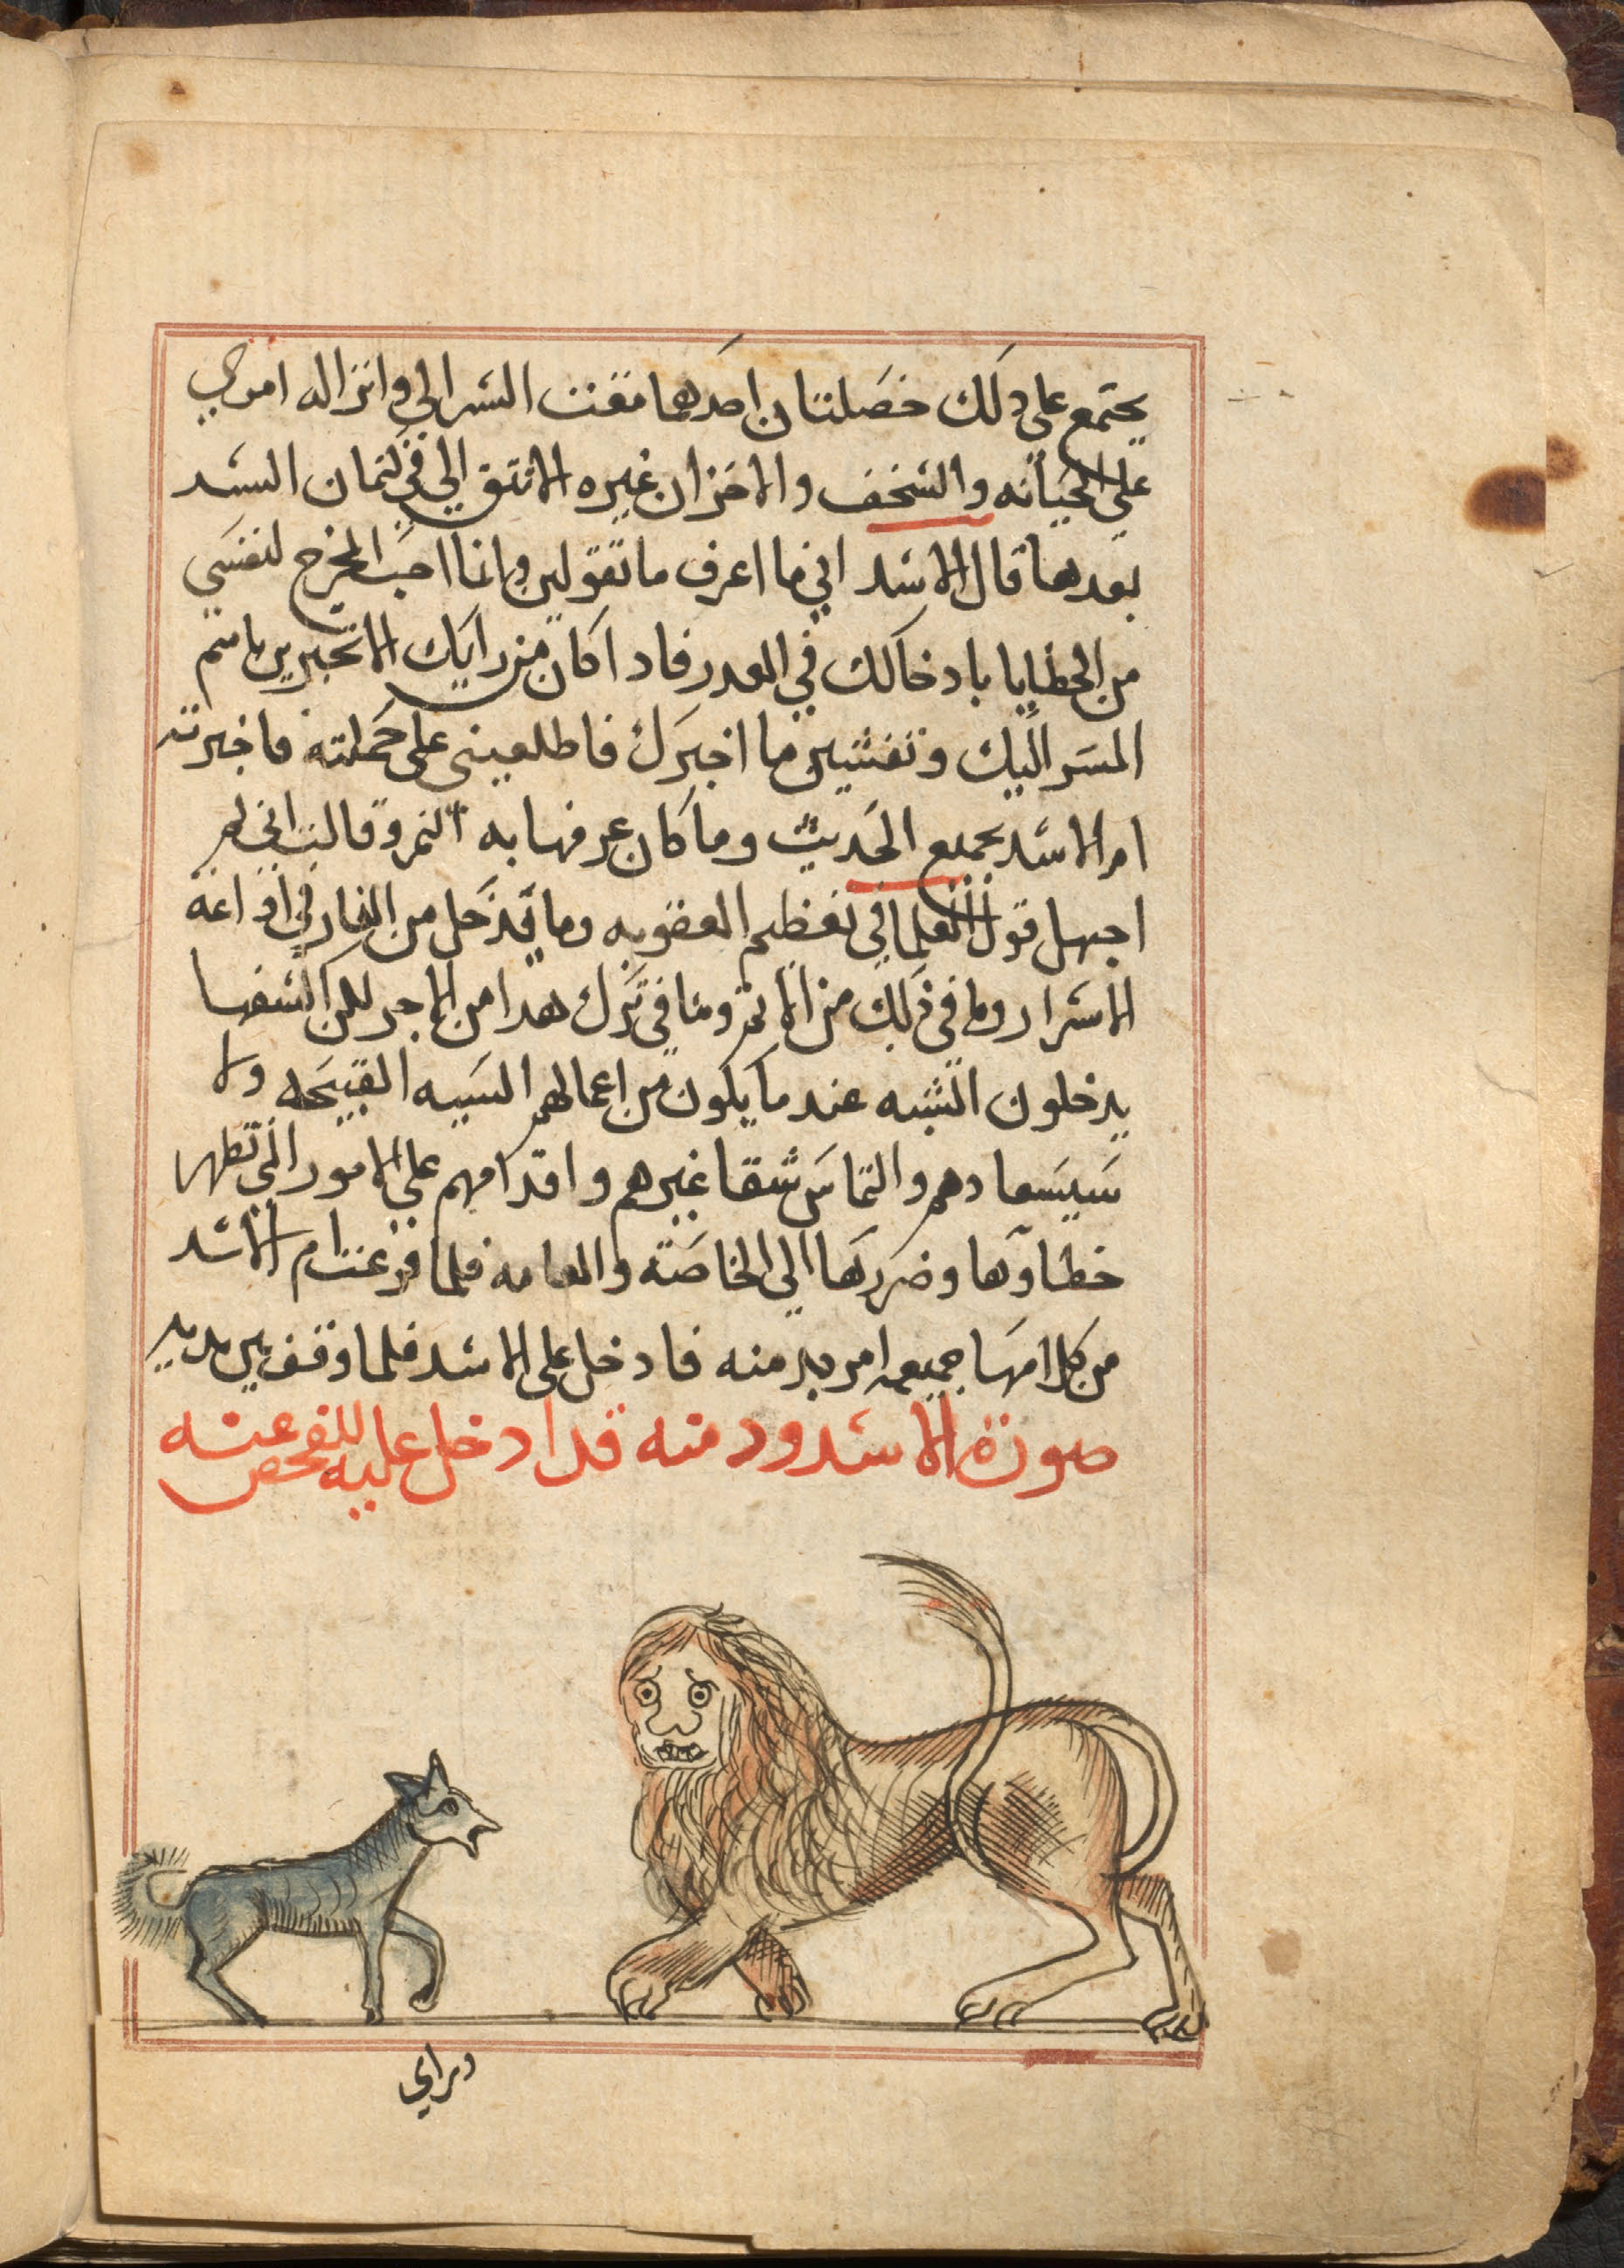 يجتمع على ذلك خصلتان احدهما مقت السر الي وانزاله اموري
على الخيانه والسخف والاخر ان غيره لا يثق الي في كتمان السر
بعدها قال الاسد اني ما اعرف ما تقولين وانما احب المخرج لنفسي
من الخطايا بادخالك في العدر فاد اكان من رايك الا تخبرين باسم
المسر اليك وتفشين ما اخبرك فاطلعيني على جملته فاخبرته
ام الاسد بجميع الحديث وما كان عرفها به النمر وقالت اني لم
اجهل قول العلما في تعظيم العقوبه وما يدخل من العار في اداعة
الاسرار وما في ذلك من الاثم وما في ترك هدا من الاجر لكن السفها
يدخلون الشبه عند ما يكون من اعمالهم السيه القبيحه ولا
سيسعادهم والتماس شقا غيرهم واقدامهم على الامور التي تظهر
خطاوها وضررها الى الخاصة والعامه فلما فرغت ام الاسد
من كلامها جميعه امر بدمنه فادخل على الاسد فلما وقف بين يديه
صورة الاسد ودمنه قد ادخل عليه للفحص عنه
وراي